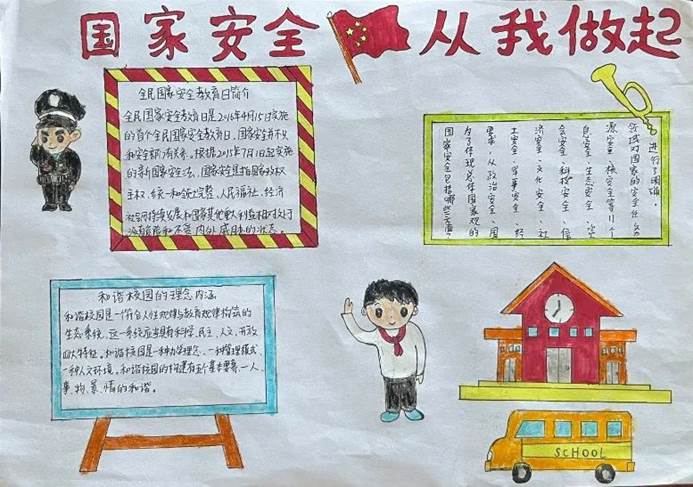 国家安全 从我做起
全民国家安全教育日简介
全民国家安全教育日是2016年4月15日实施
的首个全民国家安全教育日。国家安全并不只
和安全部门有关。根据2015年7月1日起实施
的新国家安全法、国家安全是指国家政权
主权、统一和领土完整、人民福祉、经济
社会可持续发展和国家其他重大利益相对处于
没有危险和不受内外威胁的状态。
国家安全包括哪些方面?
为了体现总体国家观的
要求,从政治安全、国
土安全、军事安全、经
济安全、文化安全、社
会安全、科技安全、信
息安全、生态安全、
源安全、核安全等11个
领域对国家的安全任务
进行了明确。
和谐校园的理念内涵
和谐校园是一个符合人性规律与教育规律构筑的
生态系统,这一系统应具有科学、民主、人文、开放
四大特征。和谐校园是一种办学理念、一种管理模式、
一种人文环境。和谐校园的构建有五个基本要素一人
事、物、景、情的和谐。
SCHOOL